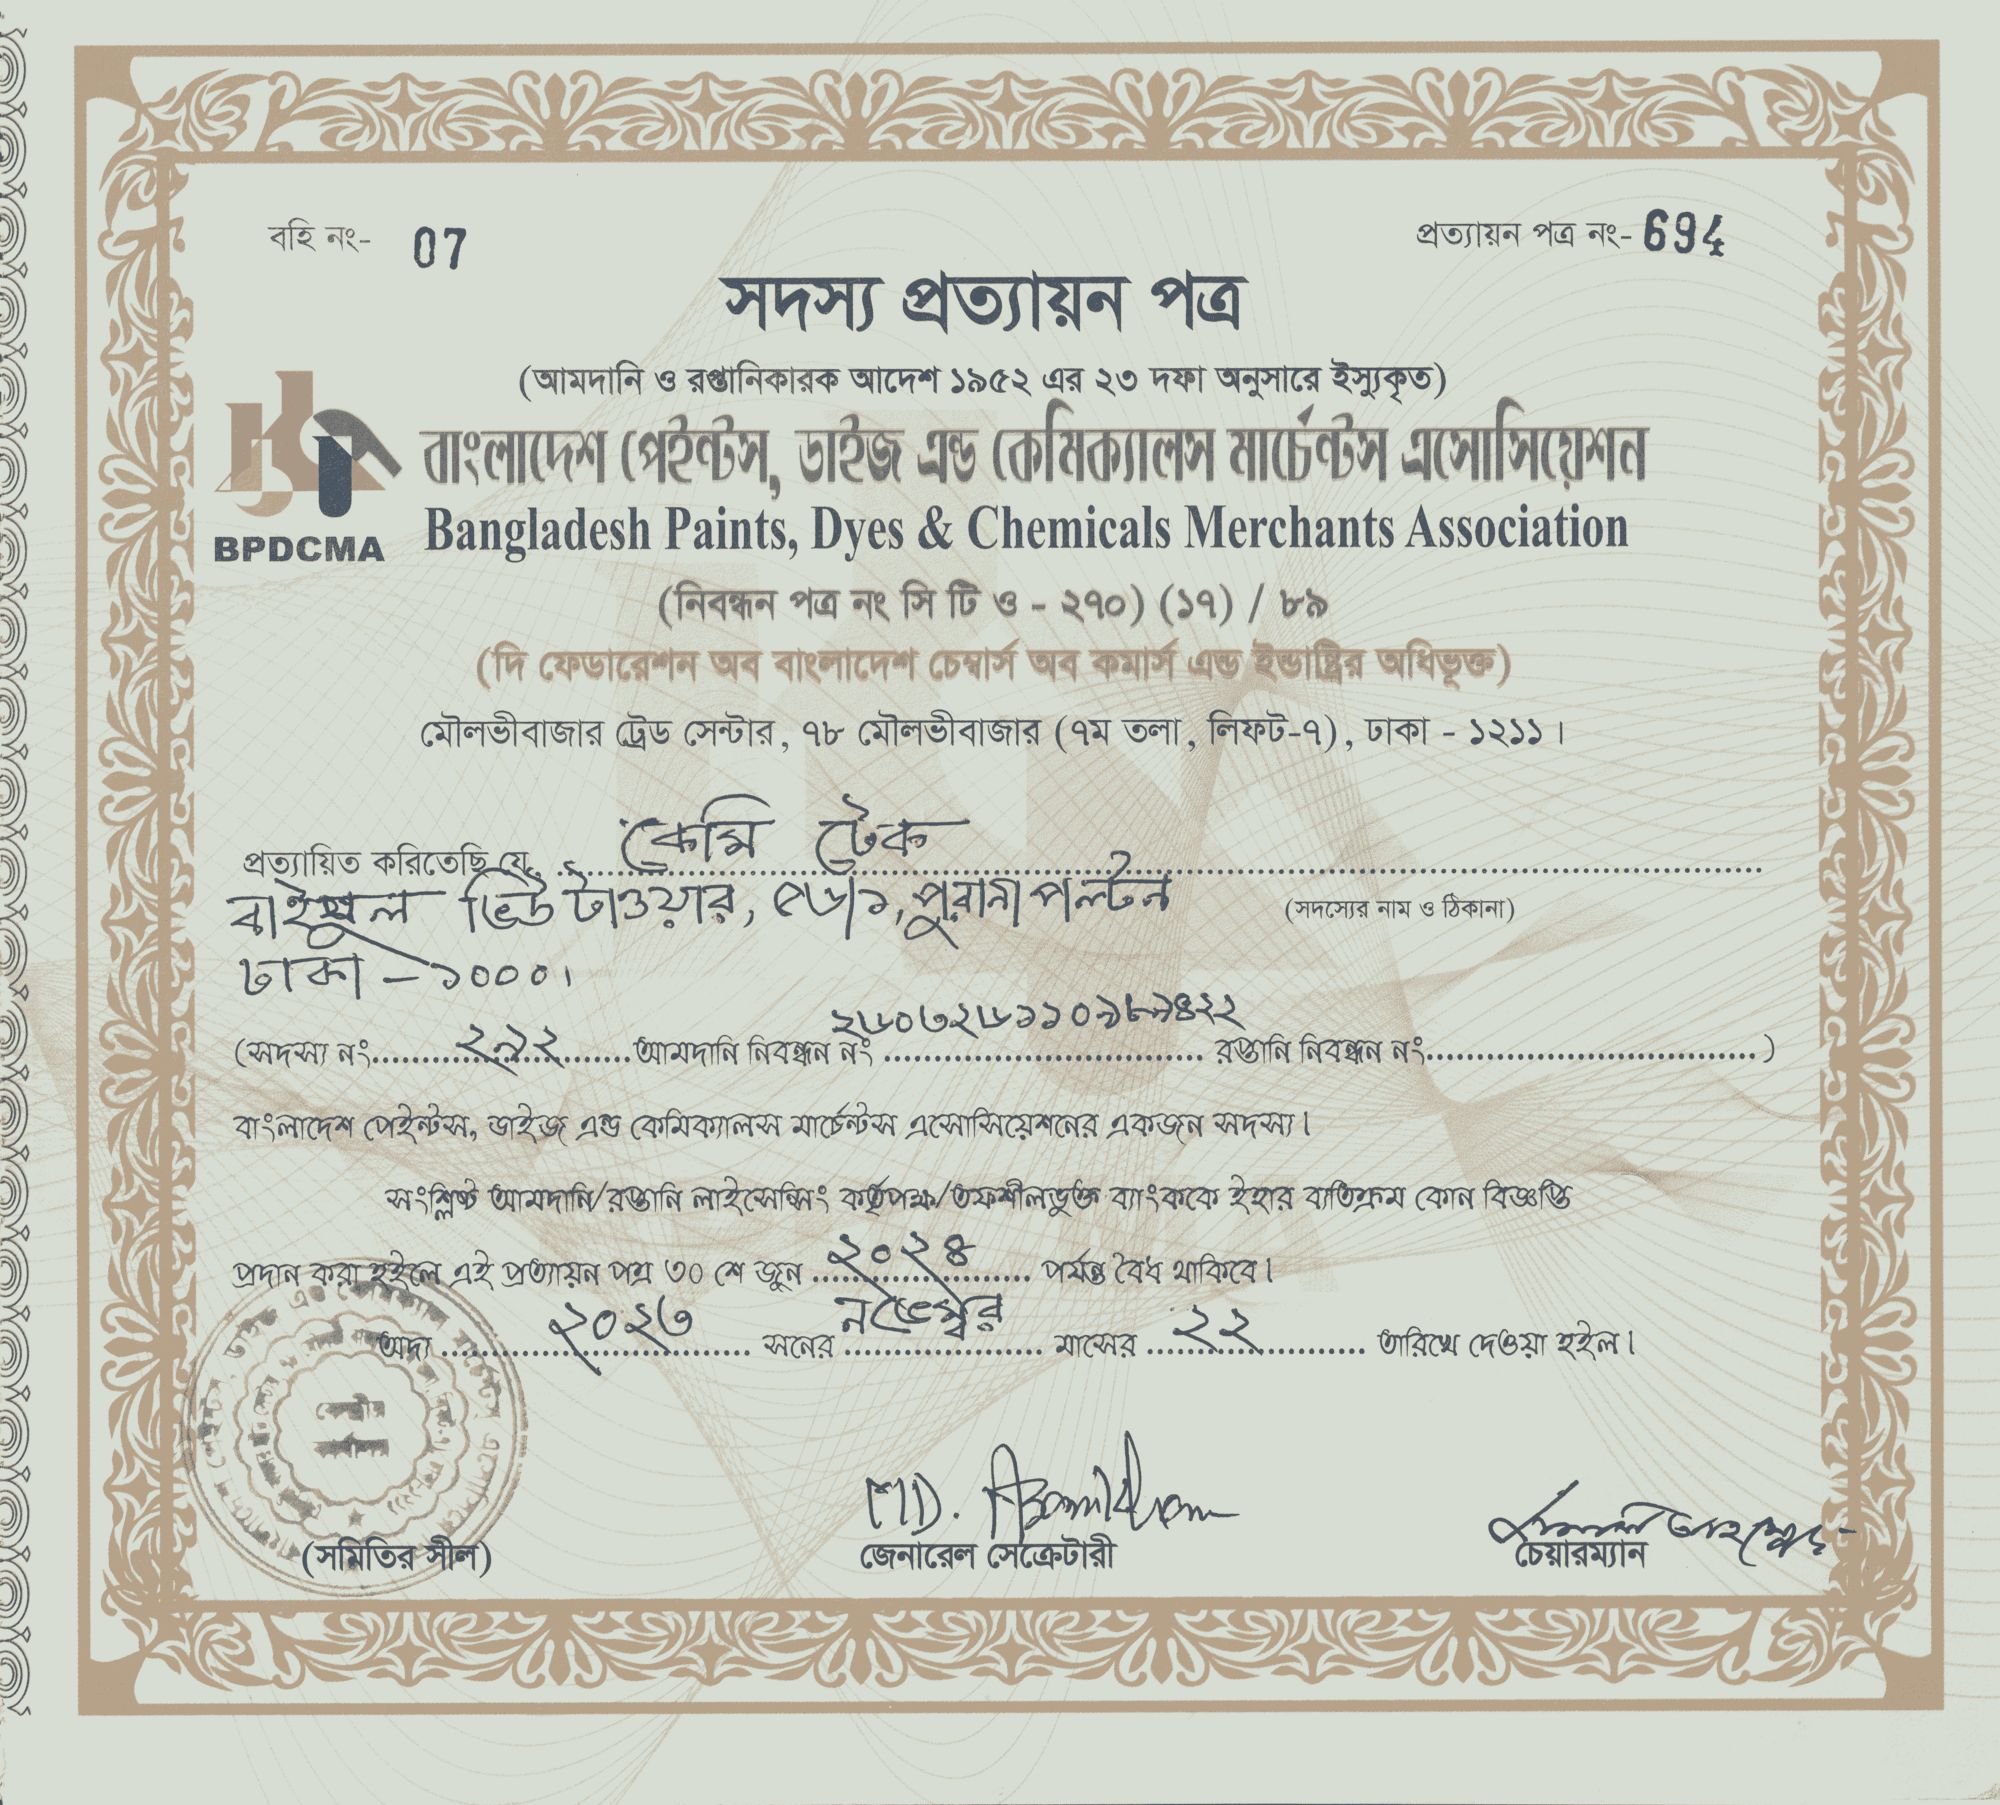 বহি নং- 07
প্রত্যায়ন পত্র নং- 694
সদস্য প্রত্যায়ন পত্র
(আমদানি ও রপ্তানিকারক আদেশ ১৯৫২ এর ২৩ দফা অনুসারে ইস্যুকৃত)
বাংলাদেশ পেইন্টস, ডাইজ এন্ড কেমিক্যালস মার্চেন্টস এসোসিয়েশন
BPDCMA
Bangladesh Paints, Dyes & Chemicals Merchants Association
(নিবন্ধন পত্র নং সি টি ও - ২৭০) (১৭) / ৮৯
(দি ফেডারেশন অব বাংলাদেশ চেম্বার্স অব কমার্স এন্ড ইন্ডাষ্ট্রির অধিভূক্ত)
মৌলভীবাজার ট্রেড সেন্টার, ৭৮ মৌলভীবাজার (৭ম তলা, লিফট-৭), ঢাকা - ১২১১।
প্রত্যায়িত করিতেছি যে, কেমি টেক
ভিউ টাওয়ার, ৫৬/১, পুরানা পল্টন (সদস্যের নাম ও ঠিকানা)
ঢাকা - ১০০০।
(সদস্য নং ২৯২ আমদানি নিবন্ধন নং রপ্তানি নিবন্ধন নং )
বাংলাদেশ পেইন্টস, ডাইজ এন্ড কেমিক্যালস মার্চেন্টস এসোসিয়েশনের একজন সদস্য।
সংশ্লিষ্ট আমদানি/রপ্তানি লাইসেন্সিং কর্তৃপক্ষ/তফশীলভুক্ত ব্যাংককে ইহার ব্যতিক্রম কোন বিজ্ঞপ্তি
প্রদান করা হইলে এই প্রত্যায়ন পত্র ৩০ শে জুন ২০২৪ পর্যন্ত বৈধ থাকিবে।
অদ্য ২০২৩ সনের নভেম্বর মাসের ২২ তারিখে দেওয়া হইল।
(সমিতির সীল)
জেনারেল সেক্রেটারী
চেয়ারম্যান